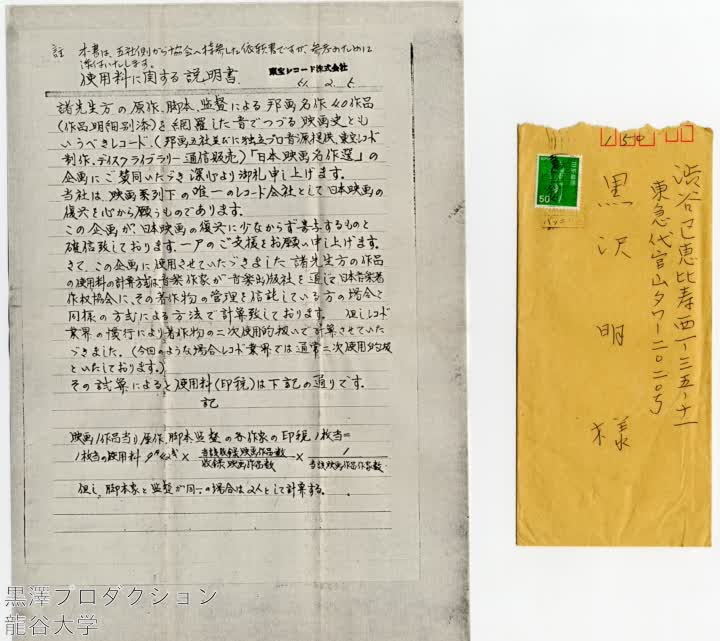 註 本書は、五社側から協会へ持参した依頼書ですが、参考のために
添付いたします。
使用料に関する説明書
東宝レコード株式会社
51. 2. 5.
諸先生方の原作、脚本、監督による邦画名作40作品
(作品明細別添)を網羅した音でつづる映画史とも
いうべきレコード、(邦画五社並びに独立プロ音源提供、東宝レコード
制作、ディスクライブラリー通信販売)「日本映画名作選」の
企画にご賛同いただき深心より御礼申し上げます。
当社は、映画系列下の唯一のレコード会社として日本映画の
復興を心から願うものであります。
この企画が、日本映画の復興に少なからず寄与するものと
確信致しております。一層のご支援をお願い申し上げます。
さて、この企画に使用させていただきました諸先生方の作品
の使用料の計算方式は音楽作家が音楽出版社を通して日本音楽著
作権協会に、その著作物の管理を信託している方の場合と
同様の方式による方法で計算致しております。但しレコード
業界の慣行により著作物の二次使用的扱いで計算させていた
だきました。(今回のような場合レコード業界では通常二次使用的扱
といたしております。)
その試算によると使用料(印税)は下記の通りです。
記
映画1作品当り原作、脚本、監督の各作家の印税1枚当=
1枚当の使用料 × 当該収録映画作品数/収録映画作品数 × 1/当該映画作品作家数
但し、脚本家と監督が同一の場合は2人として計算する。
渋谷区恵比寿西一ー三五ー十一
東急代官山タワー二〇二〇号
黒沢明様
50
黒澤プロダクション
龍谷大学